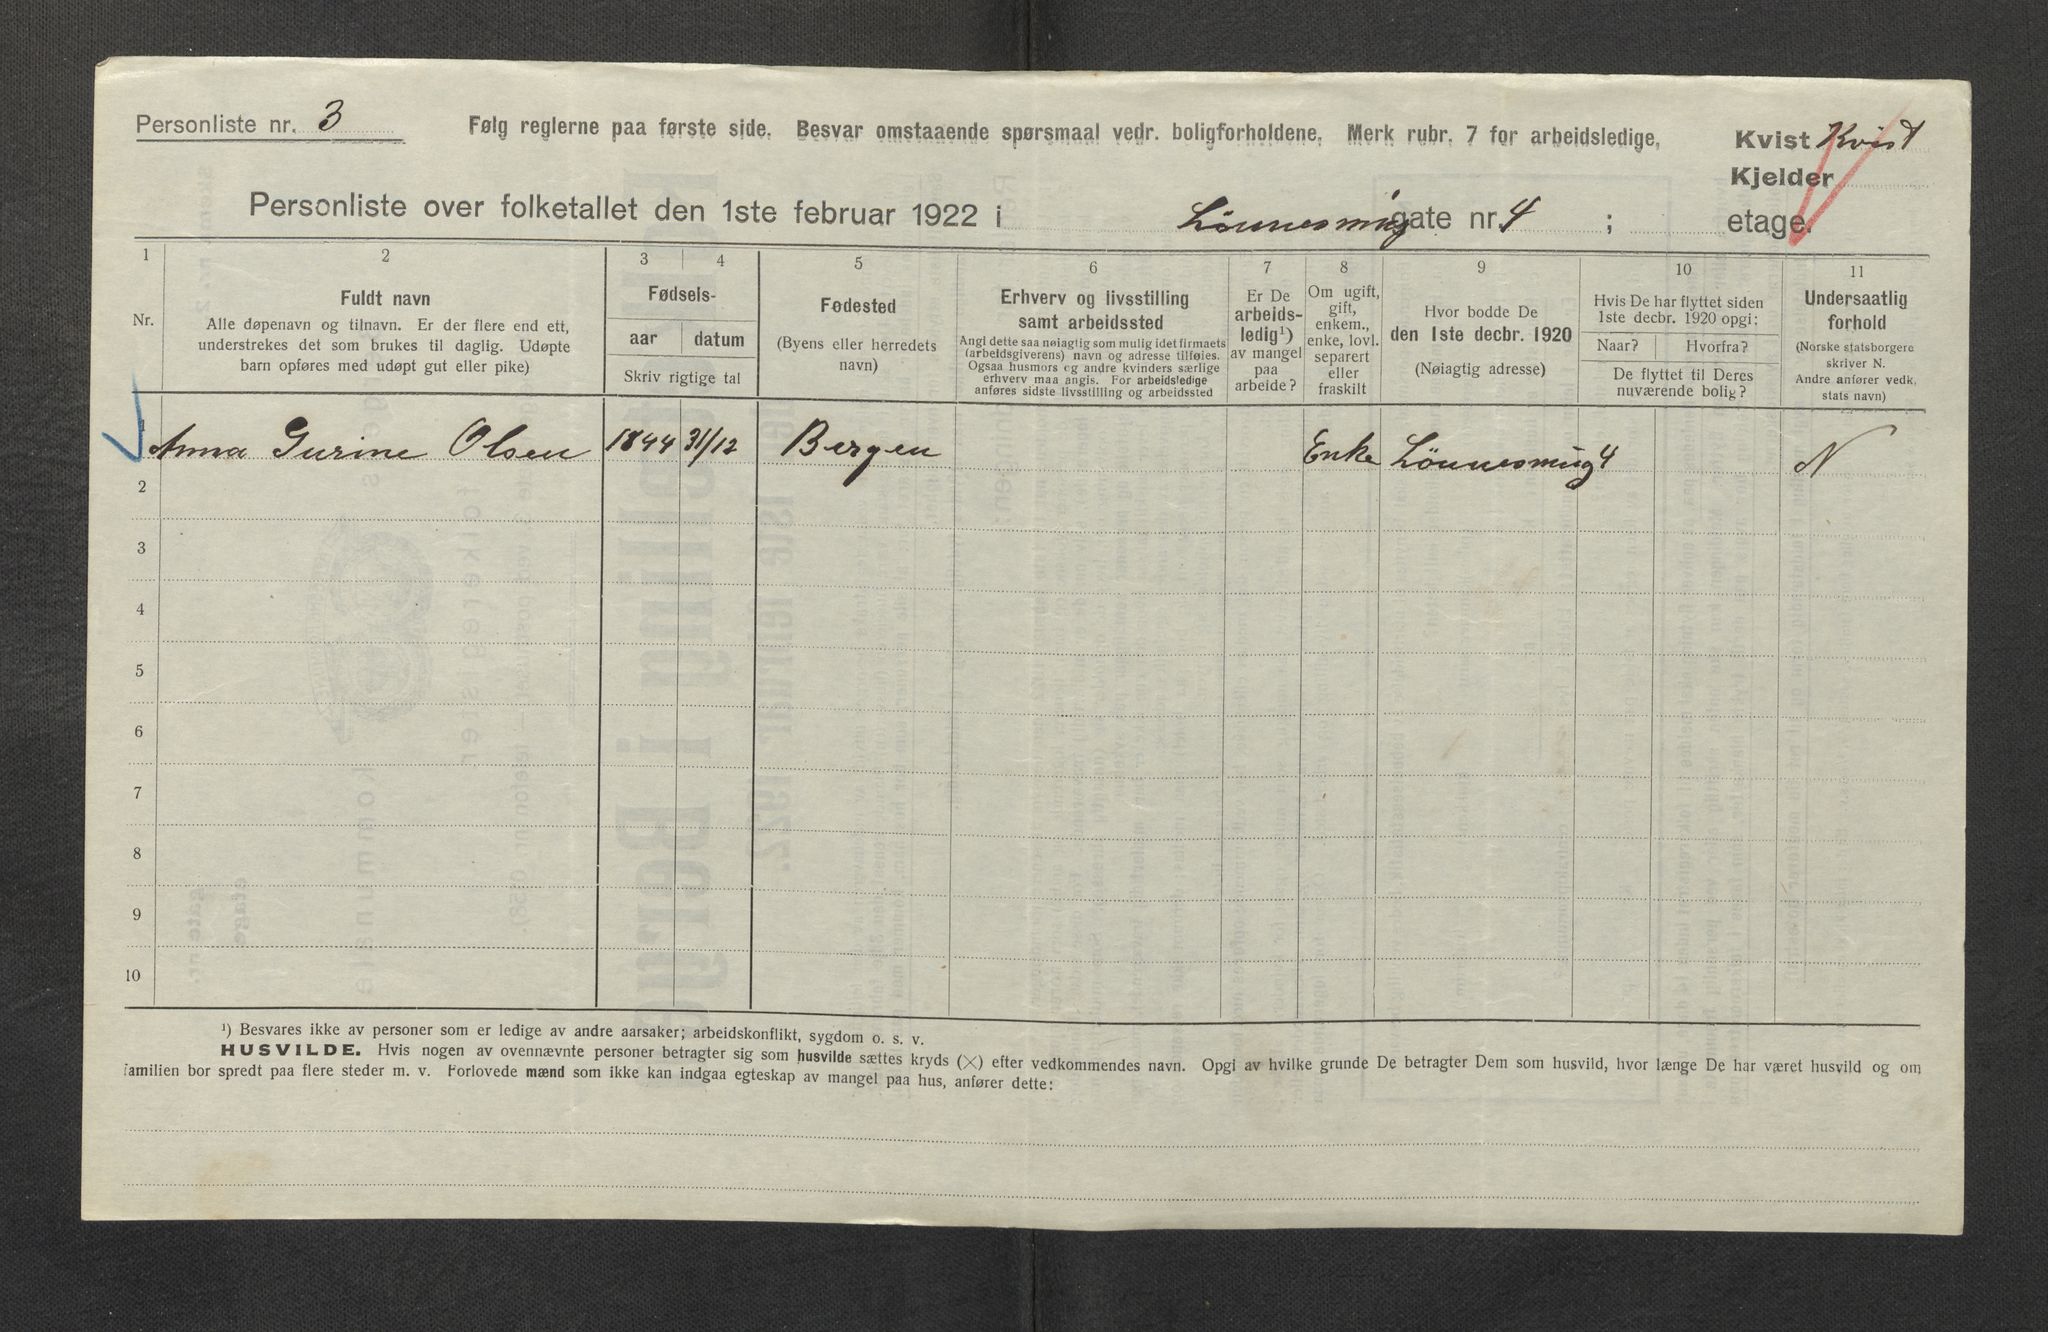 Personliste nr. 3
Følg reglerne paa første side. Besvar omstaaende spørsmaal vedr. boligforholdene. Merk rubr. 7 for arbeidsledige.
Kvist Kvist
Kjelder
Personliste over folketallet den 1ste februar 1922 i Lønnesmug gate nr. 4 ; etage.
1
Nr.
2
Fuldt navn
Alle døpenavn og tilnavn. Er der flere end ett,
understrekes det som brukes til daglig. Udøpte
barn opføres med udøpt gut eller pike)
3 4
Fødsels-
aar datum
Skriv rigtige tal
5
Fødested
(Byens eller herredets
navn)
6
Erhverv og livsstilling
samt arbeidssted
Angi dette saa nøiagtig som mulig idet firmaets
(arbeidsgiverens) navn og adresse tilføies.
Ogsaa husmors og andre kvinders særlige
erhverv maa angis. For arbeidsledige
anføres sidste livsstilling og arbeidssted
7
Er De
arbeids-
ledig¹)
av mangel
paa
arbeide?
8
Om ugift,
gift,
enkem.,
enke, lovl.
separert
eller
fraskilt
9
Hvor bodde De
den 1ste decbr. 1920
(Nøiagtig adresse)
10
Hvis De har flyttet siden
1ste decbr. 1920 opgi:
Naar? Hvorfra?
De flyttet til Deres
nuværende bolig?
11
Undersaatlig
forhold
(Norske statsborgere
skriver N.
Andre anfører vedk.
stats navn)
1 Anna Gurine Olsen 1844 31/12 Bergen Enke Lönnesmug 4 N
2
3
4
5
6
7
8
9
10
¹) Besvares ikke av personer som er ledige av andre aarsaker; arbeidskonflikt, sygdom o. s. v.
HUSVILDE. Hvis nogen av ovennævnte personer betragter sig som husvilde sættes kryds (×) efter vedkommendes navn. Opgi av hvilke grunde De betragter Dem som husvild, hvor længe De har været husvild og om
familien bor spredt paa flere steder m. v. Forlovede mænd som ikke kan indgaa egteskap av mangel paa hus, anfører dette: